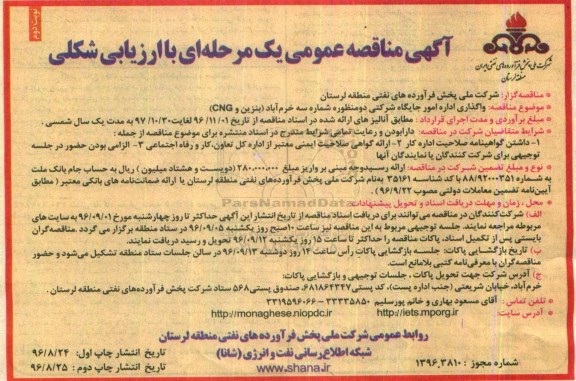 نوبت دوم
شرکت ملی پخش فرآورده های نفتی ایران
منطقه لرستان
آگهی مناقصه عمومی یک مرحله‌ای با ارزیابی شکلی
• مناقصه‌گزار: شرکت ملی پخش فرآورده های نفتی منطقه لرستان
• موضوع مناقصه: واگذاری اداره امور جایگاه شرکتی دومنظوره شماره سه خرم‌آباد (بنزین و CNG)
• مبلغ برآوردی و مدت اجرای قرارداد : مطابق آنالیز های ارائه شده در اسناد مناقصه از تاریخ ۹۶/۱۱/۰۱ لغایت ۹۷/۱۰/۳۰ به مدت یک سال شمسی .
• شرایط متقاضیان شرکت در مناقصه: دارا بودن و رعایت تمامی شرایط مندرج در اسناد منتشره برای موضوع مناقصه از جمله :
۱- داشتن گواهینامه صلاحیت اداره کار ۲- ارائه گواهی صلاحیت ایمنی معتبر از اداره کل تعاون، کار و رفاه اجتماعی ۳- الزامی بودن حضور در جلسه
توجیهی برای شرکت کنندگان یا نمایندگان آنها
• نوع و مبلغ تضمین شرکت در مناقصه: ارائه رسید وجه مبنی بر واریز مبلغ ۲۸۰،۰۰۰،۰۰۰ (دویست و هشتاد میلیون ) ریال به حساب جام بانک ملت
به شماره ۸۸/۹۲۰۰۳۵۱ با کد شناسه ۳۵۱۶۱ به‌نام شرکت ملی پخش فرآورده‌های نفتی منطقه لرستان یا ارائه ضمانت‌نامه های بانکی معتبر ( مطابق
آیین‌نامه تضمین معاملات دولتی مصوب ۹۴/۹/۲۲ )
• محل ، زمان و مهلت دریافت اسناد و تحویل پیشنهادات:
الف) شرکت‌کنندگان در مناقصه می‌توانند برای دریافت اسناد مناقصه از تاریخ انتشار این آگهی حداکثر تا روز چهارشنبه مورخ ۹۶/۰۹/۰۱ به سایت های
مربوطه مراجعه نمایند. جلسه توجیهی مربوط به این مناقصه نیز ساعت ۱۰صبح روز یکشنبه ۹۶/۰۹/۰۵ در ستاد منطقه برگزار می گردد. مناقصه‌گران
بایستی پس از تکمیل اسناد، پاکات مناقصه را حداکثر تا ساعت ۱۵ روز یکشنبه ۹۶/۰۹/۱۲ تحویل و رسید دریافت نمایند.
ب) تاریخ بازگشایی پاکات: جلسه بازگشایی پاکات رأس ساعت ۱۴ روز دوشنبه ۹۶/۰۹/۱۳ در سالن جلسات ستاد منطقه تشکیل می‌شود و حضور
مناقصه‌گران با معرفی‌نامه کتبی بلامانع است.
ج) آدرس شرکت جهت تحویل پاکات ، جلسات توجیهی و بازگشایی پاکات:
خرم‌آباد، خیابان شریعتی (جنب اداره پست)، کد پستی ۶۸۱۸۶۴۳۴۷، صندوق پستی ۵۶۸ ستاد شرکت پخش فرآورده‌های نفتی منطقه لرستان .
• تلفن تماس : آقای مسعود بهاری و خانم پورسلیم ۳۳۳۳۵۸۵۰ - ۳۳۱۹۵۹۶۰۶۶
• آدرس سایت: http://iets.mporg.ir http://monaghese.niopdc.ir
روابط عمومی شرکت ملی پخش فرآورده های نفتی منطقه لرستان
شبکه اطلاع‌رسانی نفت و انرژی (شانا)
www.shana.ir
شماره مجوز : ۱۳۹۶,۳۸۱۰
تاریخ انتشار چاپ اول: ۹۶/۸/۲۴
تاریخ انتشار چاپ دوم : ۹۶/۸/۲۵
ParsNamadData